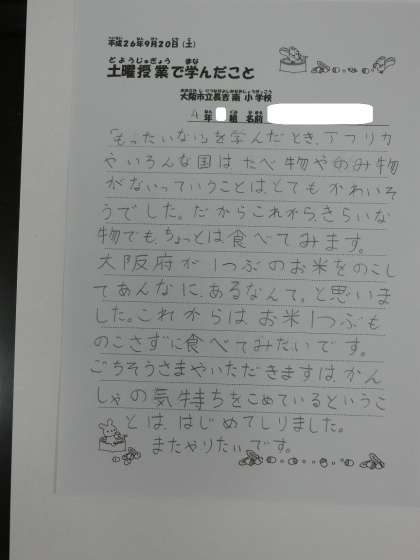 平成26年9月20日(土)
土曜授業で学んだこと
大阪市立長吉南小学校
4年 組 名前
「もったいない」を学んだとき、アフリカ
やいろんな国は、たべ物やのみ物
がないっていうことはとてもかわいそ
うでした。だからこれから、きらいな
物でも、ちょっとは食べてみます。
大阪府が1つぶのお米をのこし
てあんなに、あるなんて。と思いま
した。これからはお米1つぶも
のこさずに食べてみたいです。
ごちそうさまやいただきますは、かん
しゃの気持ちをこめているというこ
とは、はじめてしりました。
またやりたいです。